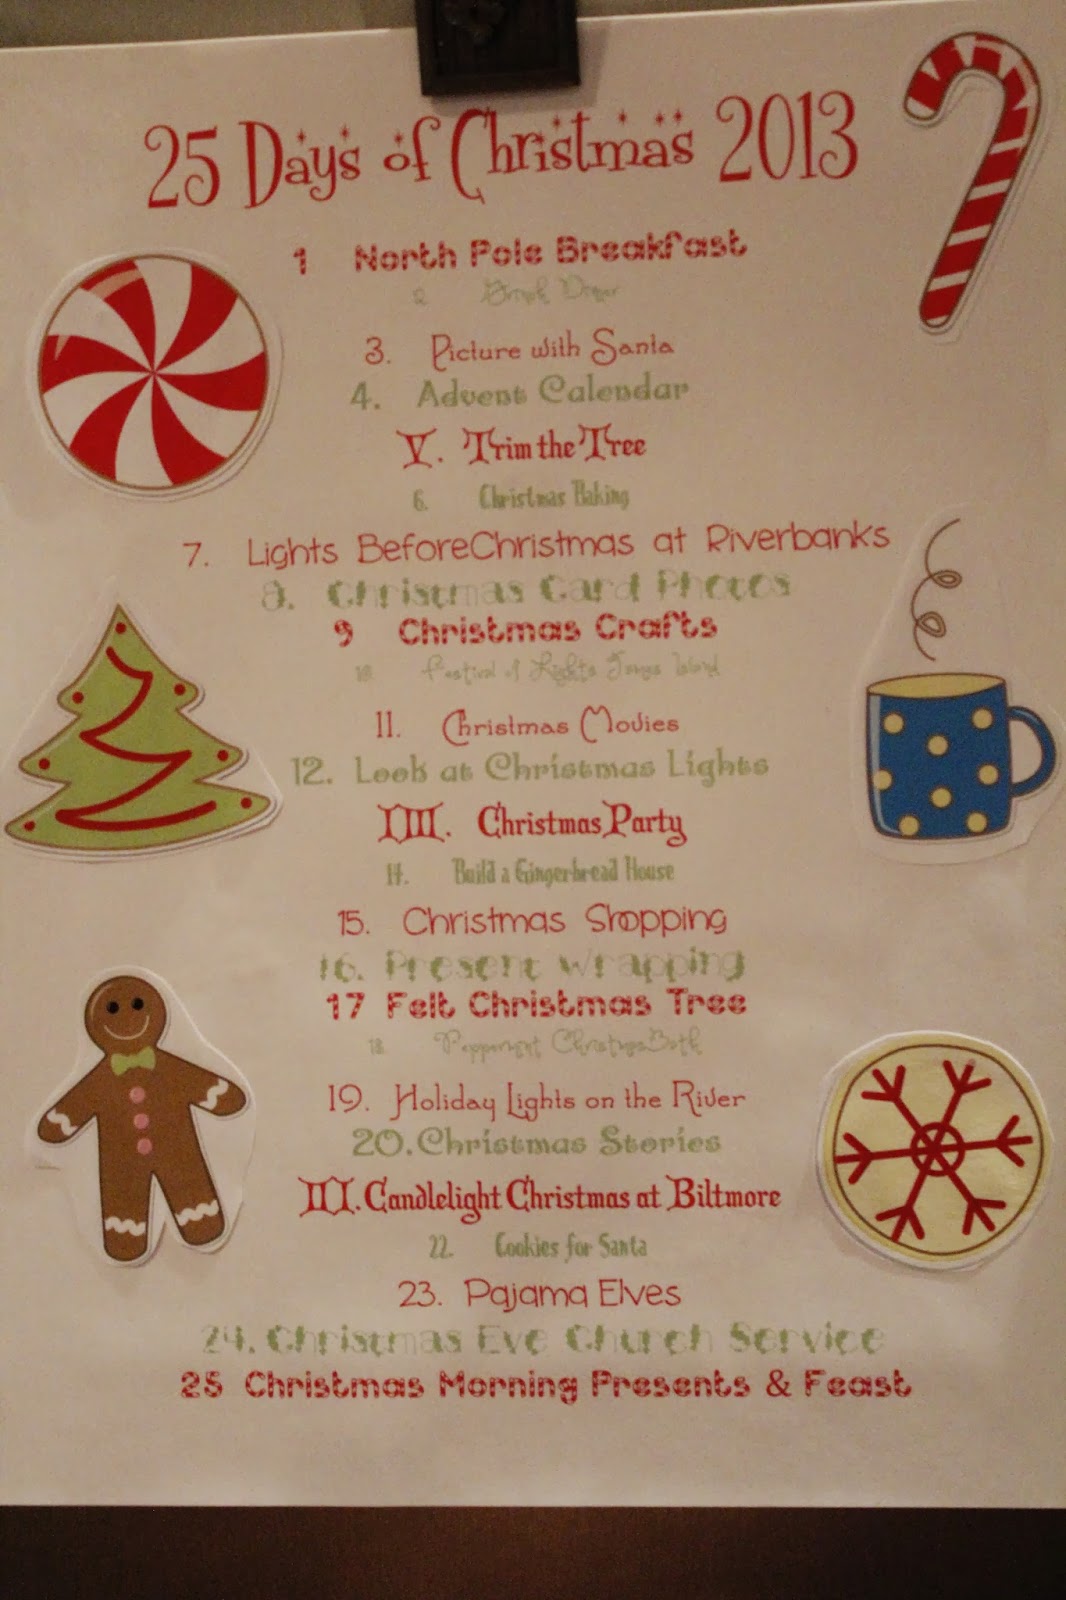 25 Days of Christmas 2013
1 North Pole Breakfast
2. Grinch Dinner
3. Picture with Santa
4. Advent Calendar
V. Trim the Tree
6. Christmas Baking
7. Lights BeforeChristmas at Riverbanks
8. Christmas Card Photos
9 Christmas Crafts
10. Festival of Lights James Island
11. Christmas Movies
12. Look at Christmas Lights
IIII. Christmas Party
14. Build a Gingerbread House
15. Christmas Shopping
16. Present Wrapping
17 Felt Christmas Tree
18. Peppermint Christmas Bath
19. Holiday Lights on the River
20. Christmas Stories
III. Candlelight Christmas at Biltmore
22. Cookies for Santa
23. Pajama Elves
24. Christmas Eve Church Service
25 Christmas Morning Presents & Feast